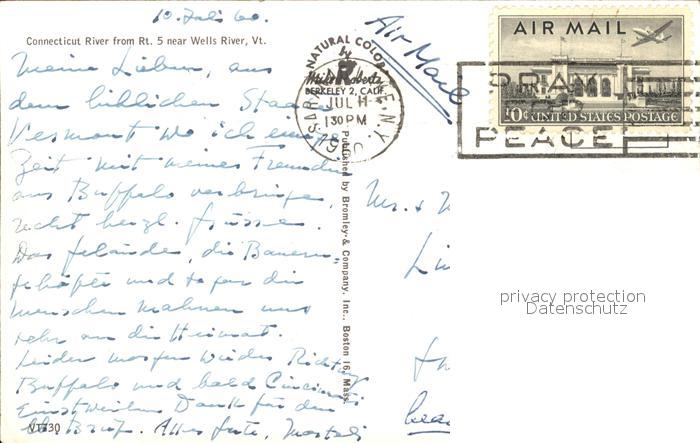 10. Juli 60.
Connecticut River from Rt. 5 near Wells River, Vt.
Meine Lieben, aus
dem lieblichen Staate
Vermont wo ich einige
Zeit mit meinen Freunden
aus Buffalo verbringe,
recht herzl. Grüsse.
Das Gelände, die Bauern-
gehöfte und sogar die
Menschen mahnen uns
sehr an die Heimat.
Leider morgen wieder Richtung
Buffalo und bald Cincinnati
Einstweilen Dank für den
lb. Brief. Alles Gute,
VT730
Published by Bromley & Company, Inc., Boston 16, Mass.
NATURAL COLOR
by
Mike Roberts
BERKELEY 2, CALIF.
JUL 11
130 PM
N.Y.
Air Mail
AIR MAIL
10¢ UNITED STATES POSTAGE
PRAY
FOR
PEACE
Mr. &
privacy protection
Datenschutz